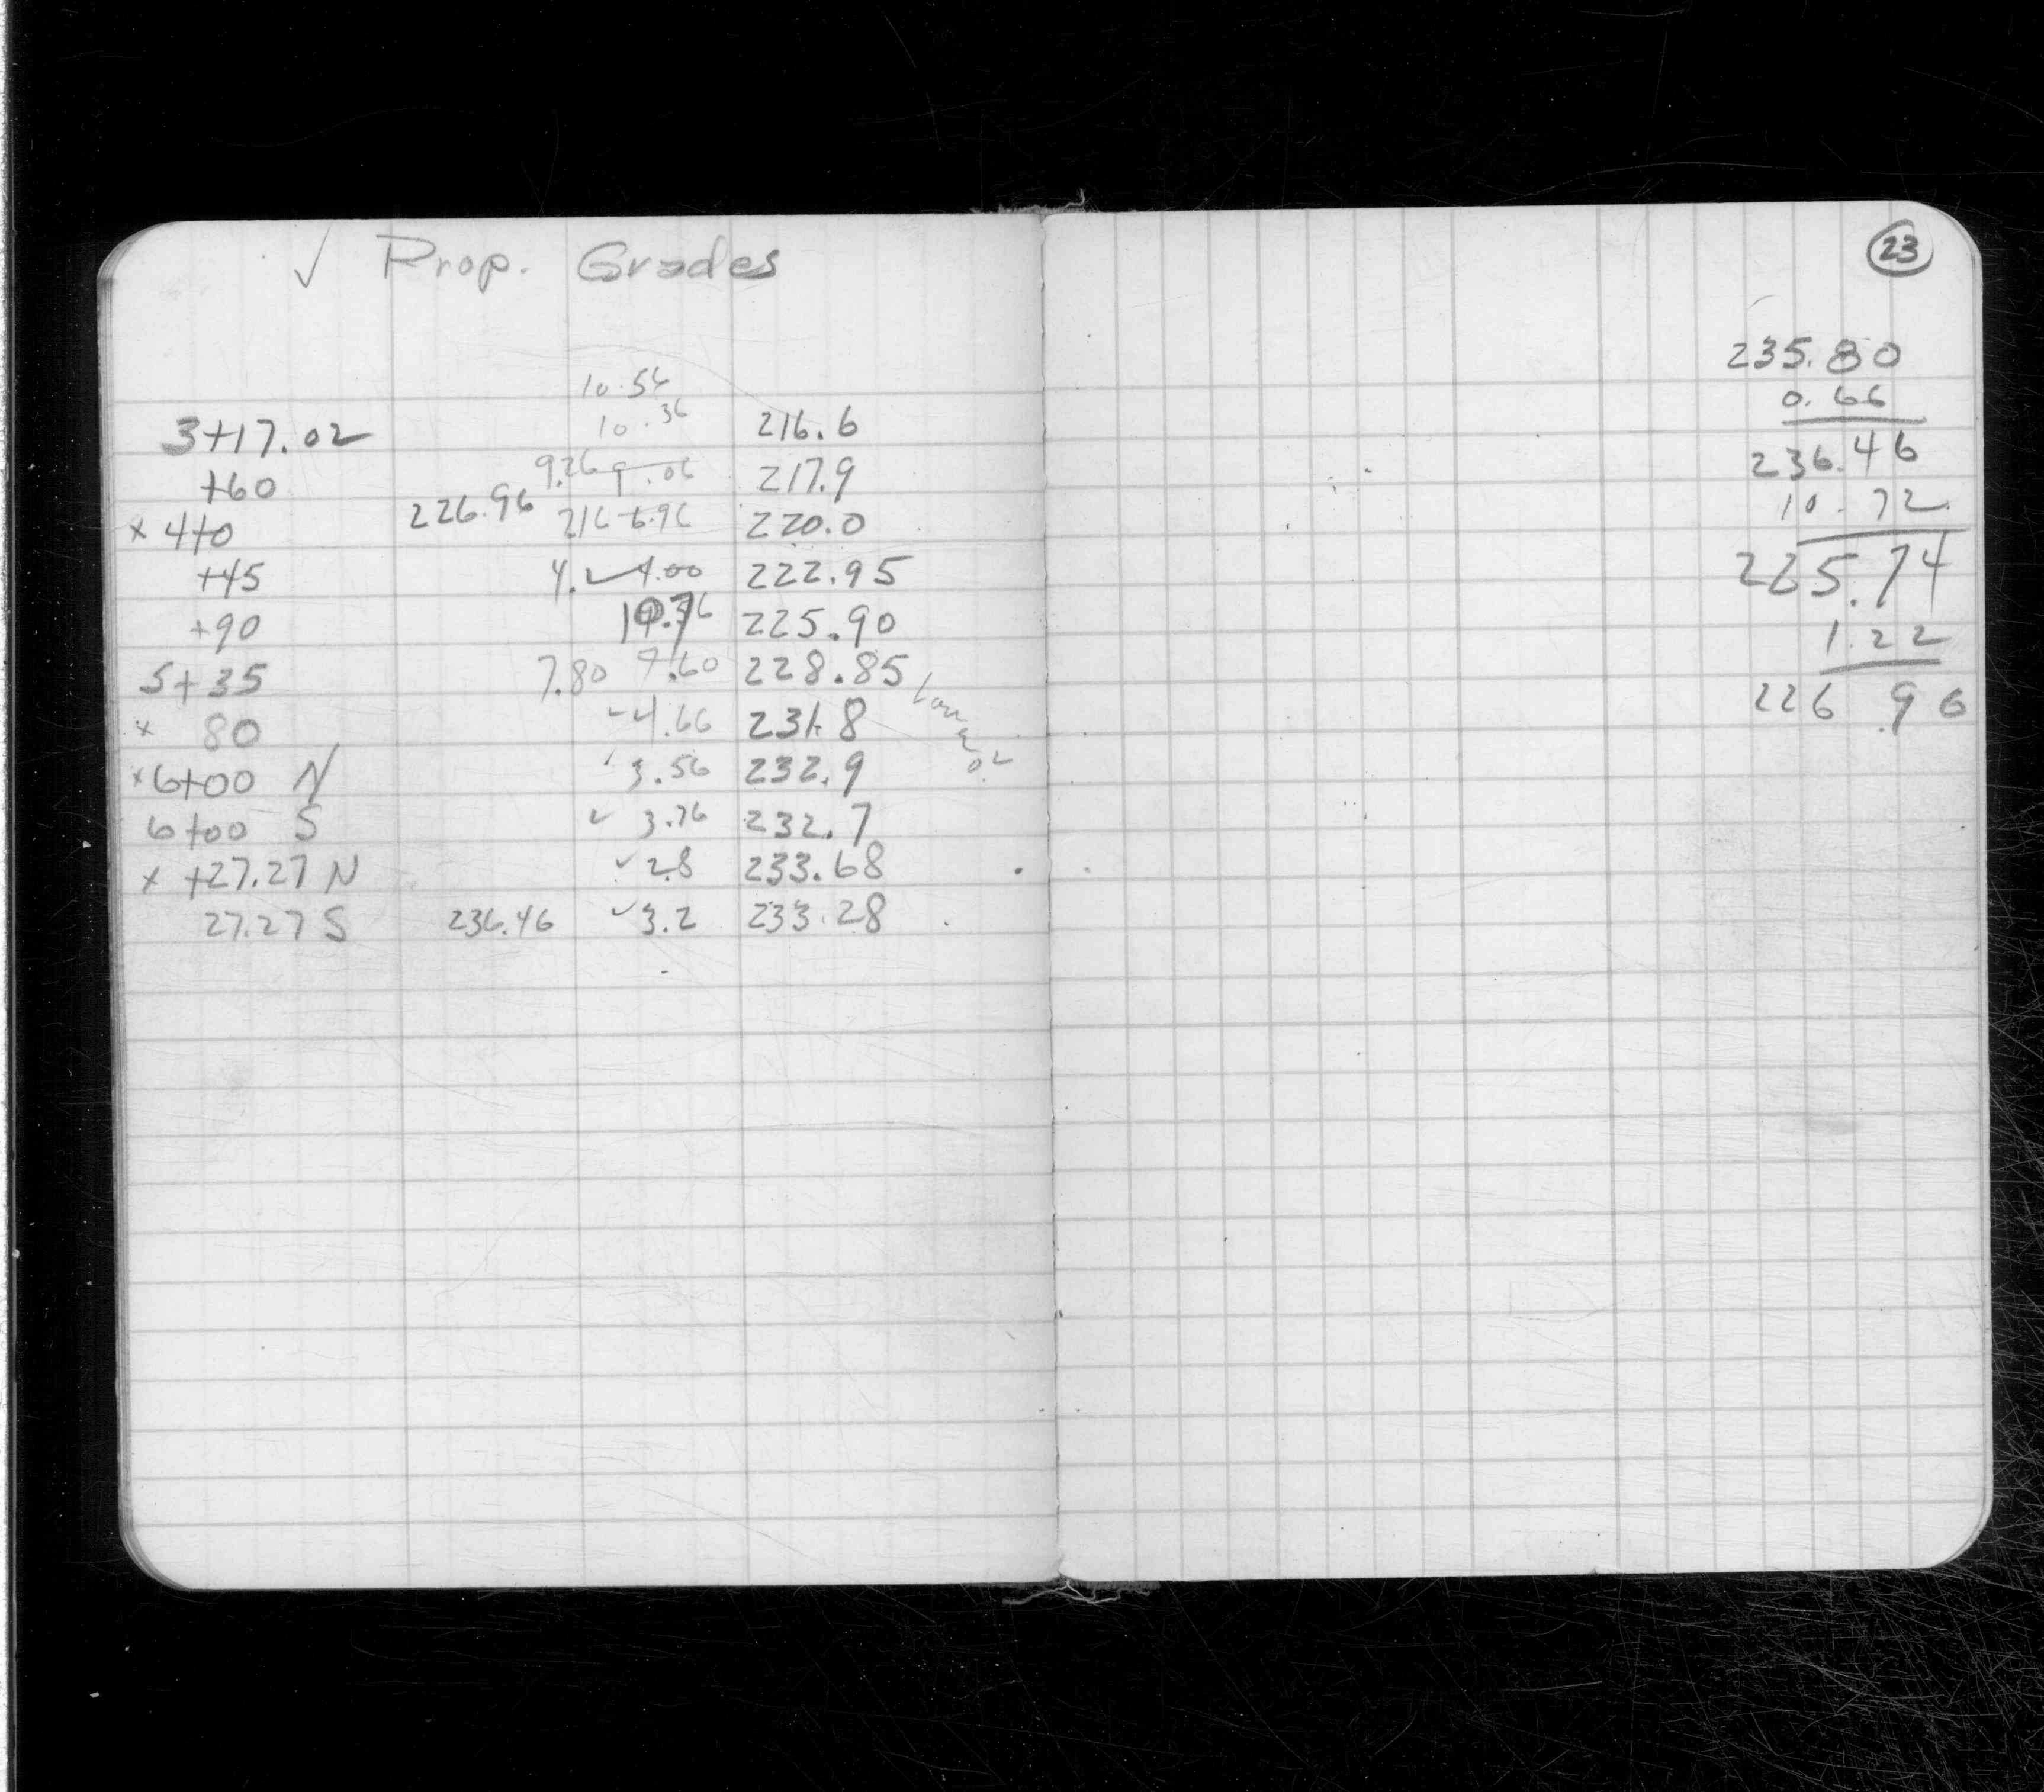 ✓ Prop. Grades
10.56
3+17.02 10.36 216.6
+60 9.26 9.06 217.9
x 4+0 226.96 216 6.96 220.0
+45 4.2 ✓ 4.00 222.95
+90 225.90
5+35 7.80 7.60 228.85
x 80 - 4.66 231.8
x 6+00 N ' 3.56 232.9
6+00 S ✓ 3.76 232.7
x +27.27 N ✓ 2.8 233.68
27.27 S 236.46 ✓ 3.2 233.28
23
235.80
0.66
236.46
10.72
225.74
1.22
226.96